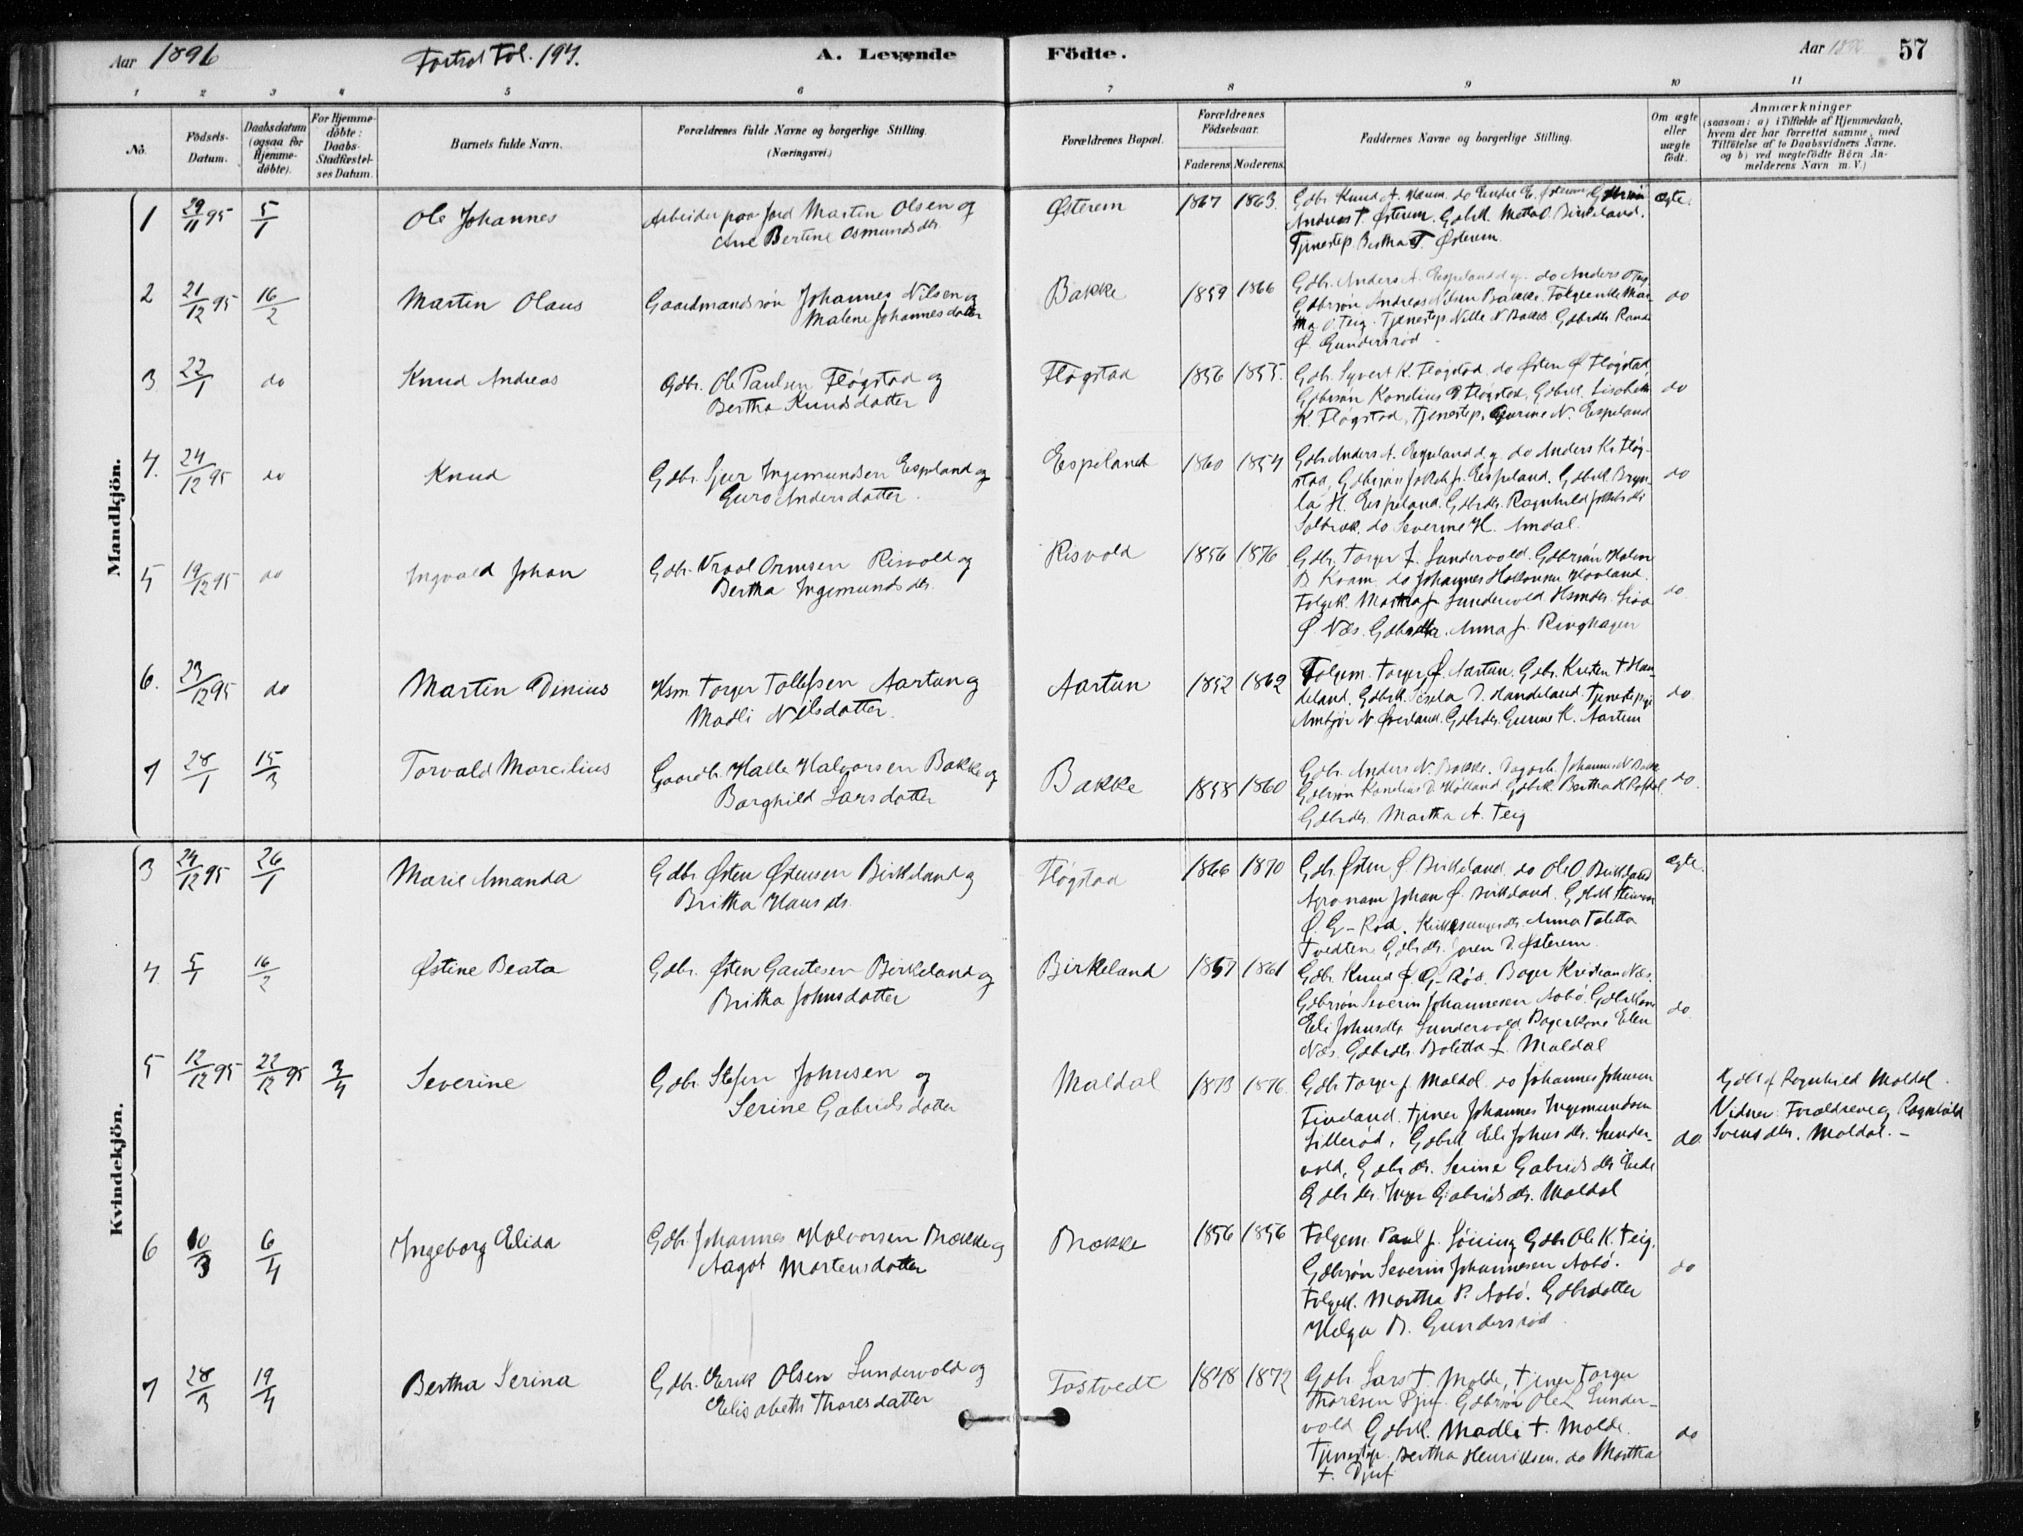 Aar 1896
Fortsat Fol. 197.
A. Levende
Födte.
Aar
57
1 2 3 4 5 6 7 8 9 10 11
No.
Födsels-
Datum.
Daabsdatum
(ogsaa for
Hjemme-
döbte).
For Hjemme-
döbte:
Daabs-
Stadfæstel-
ses Datum.
Barnets fulde Navn.
Forældrenes fulde Navne og borgerlige Stilling.
(Næringsvei.)
Forældrenes Bopæl.
Forældrenes
Födselsaar.
Faderens. Moderens.
Faddernes Navne og borgerlige Stilling.
Om ægte
eller
uægte
födt.
Anmærkninger
(saasom: a) i Tilfælde af Hjemmedaab,
hvem der har forrettet samme, med
Tilföielse af to Daabsvidners Navne.
og b) ved uægtefödte Börn An-
melderens Navn m. V.)
Mandkjön.
1 29/11 95 5/1 Ole Johannes
Arbeider paa Jord Martin Olsen og
Ane Bertine Osmundsdtr
Østerem 1867 1863.
Gdbr. Knud A. do Endre E. Østerem
Andreas T. Østerem. Gdbrk. O. Birkeland.
Tjenestep. Bertha T. Østerem.
ægte.
2 21/12 95 16/2 Martin Olaus
Gaardmandssøn Johannes Nilsen og
Malene Johannesdatter
Bakke 1859 1866
Gdbr. Anders A. Espeland d.y. do Anders O Teig
Gdbrsøn Andreas Nilsen Bakke. Mar-
tha O Teig. Tjenestep. Nille N. Bakke. Gdbrdtr.
Ø Gundersrød.
do
3 22/1 do Knud Andreas
Gdbr. Ole Paulsen Fløgstad og
Bertha Knudsdatter
Fløgstad 1856 1855.
Gdbr. Syvert K. Fløgstad. do Østen Ø Fløgstad
Gdbrsøn Kornelius Fløgstad, Gdbrk. Lisabeth
K. Fløgstad, Tjenestep. Gurine N. Espeland
do
4. 24/12 95 do Knud
Gdbr. Sjur Ingemundsen Espeland og
Guro Andersdatter.
Espeland 1860 1854
Gdbr. Anders A. Espeland d.y. do Anders K. Fløg-
stad, Gdbrsøn Jakob J. Espeland. Gdbrk. Bryn-
la H. Espeland. Gdbrdtr. Ragnhild
do Severine H. Amdal.
do
5 19/12 95 do Ingvald Johan
Gdbr. Vraal Ormsen Risvold og
Bertha Ingemundsdtr.
Risvold 1856 1876
Gdbr. Torger J. Sundervold. Gdbrsøn
B Kvam, do Johannes Hovland.
Folgek. Martha J. Sundervold
Ø. Næs. Gdbrdtr. Anna J. Ringhagen
do
6. 23/12 95 do Martin Dinius
Hsm. Torger Tollefsen Aartun og
Madli Nilsdatter.
Aartun 1852 1862
Folgem. Torger Ø. Aartun. Gdbr. Kristen T Han-
deland, Gdbrk. D. Handeland. Tjenestepige
N. Øverland. Gdbrdtr. Gurine K. Aartun
do
7 28/1 15/3 Torvald Marcelius
Gaardbr. Halle Halvorsen Bakke og
Borghild Larsdatter
Bakke 1858 1860
Gdbr. Anders N. Bakke. Johannes N. Bakke
Gdbrsøn Kornelius D. Gdbrk. Bertha
Gdbrdtr. Martha A. Teig
do.
Kvindekjön.
3 24/12 95 26/1 Marie Amanda
Gdbr. Østen Østensen Birkeland og
Britha Hansdtr.
Fløgstad 1866 1870
Gdbr. Østen Ø Birkeland, do Ole O Birkeland
Agronom Johan Ø. Birkeland. Gdbrk
Ø. G-Rød. Kirkesangerdtr. Anna Taletta
Tvedten Gdbrdtr. D. Østerem.
ægte.
4 5/1 16/2 Østine Beata
Gdbr. Østen Gautesen Birkeland og
Britha Johnsdatter
Birkeland 1857 1861
Gdbr. Knud Ø G-Rød. Bager Kristian Næs.
Gdbrsøn Severin Johannesen Aabø. Gdbrkone
Eli Johnsdtr. Sundervold. Bagerkone Elen
Næs. Gdbrdtr. Boletta J. Maldal
do
5 12/12 95 22/12 95 3/4 Severine
Gdbr. Stefen Johnsen og
Serine Gabrielsdatter
Maldal 1873 1876.
Gdbr. Torger J. Maldal. do Johannes Johnsen
Fineland. Tjener Johannes Ingemundsen
Lillerød, Gdbrk. Eli Johnsdtr. Sunder-
vold, Gdbrdtr. Serine Gabrielsdtr Eide
Gdbrdtr. Inger Gabrielsdtr. Maldal
do
Gdbr af Ragnhild Maldal.
Vidner: Forældrene og Ragnhild
Svensdtr. Maldal. –
6 10/3 6/4 Ingeborg Elida
Gdbr. Johannes Halvorsen Brække og
Aagot Mortensdatter
Brække 1856 1856
Folgem. Paul J. Gdbr. Ole K. Teig.
Gdbrsøn Severin Johannesen Aabø.
Folgek. Martha P. Aabø. Gdbrdatter
Helga B. Gundersrød.
do
7 28/3 19/4 Bertha Serina
Gdbr. Erik Olsen Sundervold og
Elisabeth Thoresdatter
Tostvedt 1848 1872
Gdbr. Lars T. Molde, Tjener Torger
Thoresen Djuf. Gdbrsøn Ole L Sunder-
vold Gdbrk. Madli T. Molde.
Tjenestep. Bertha Henriksen. do Martha
T. Djuf
do